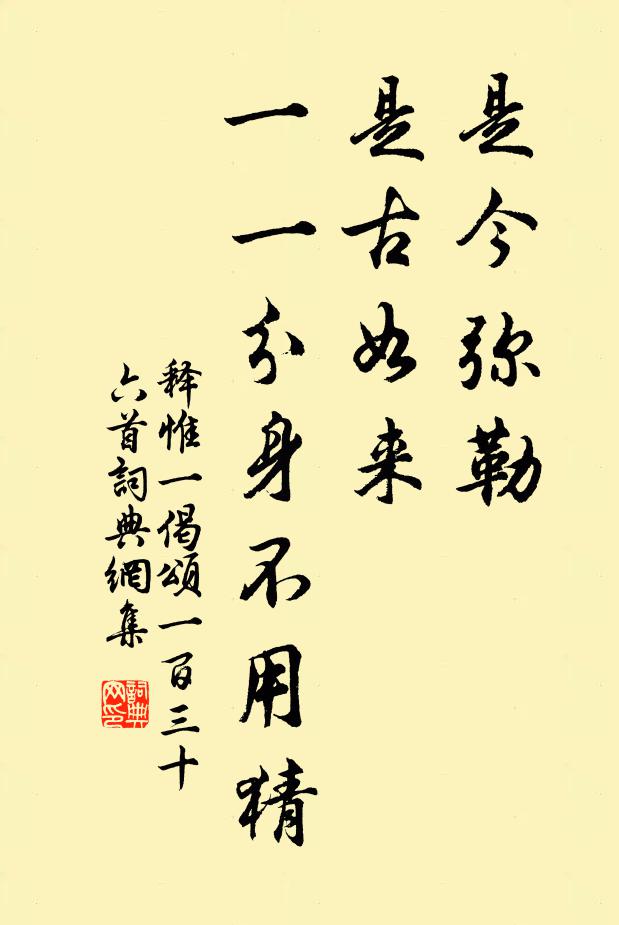 是今弥勒
是古如来
一一分身不用猜
释惟一偈頌一百三十
六首詞典網集
詞典
网印